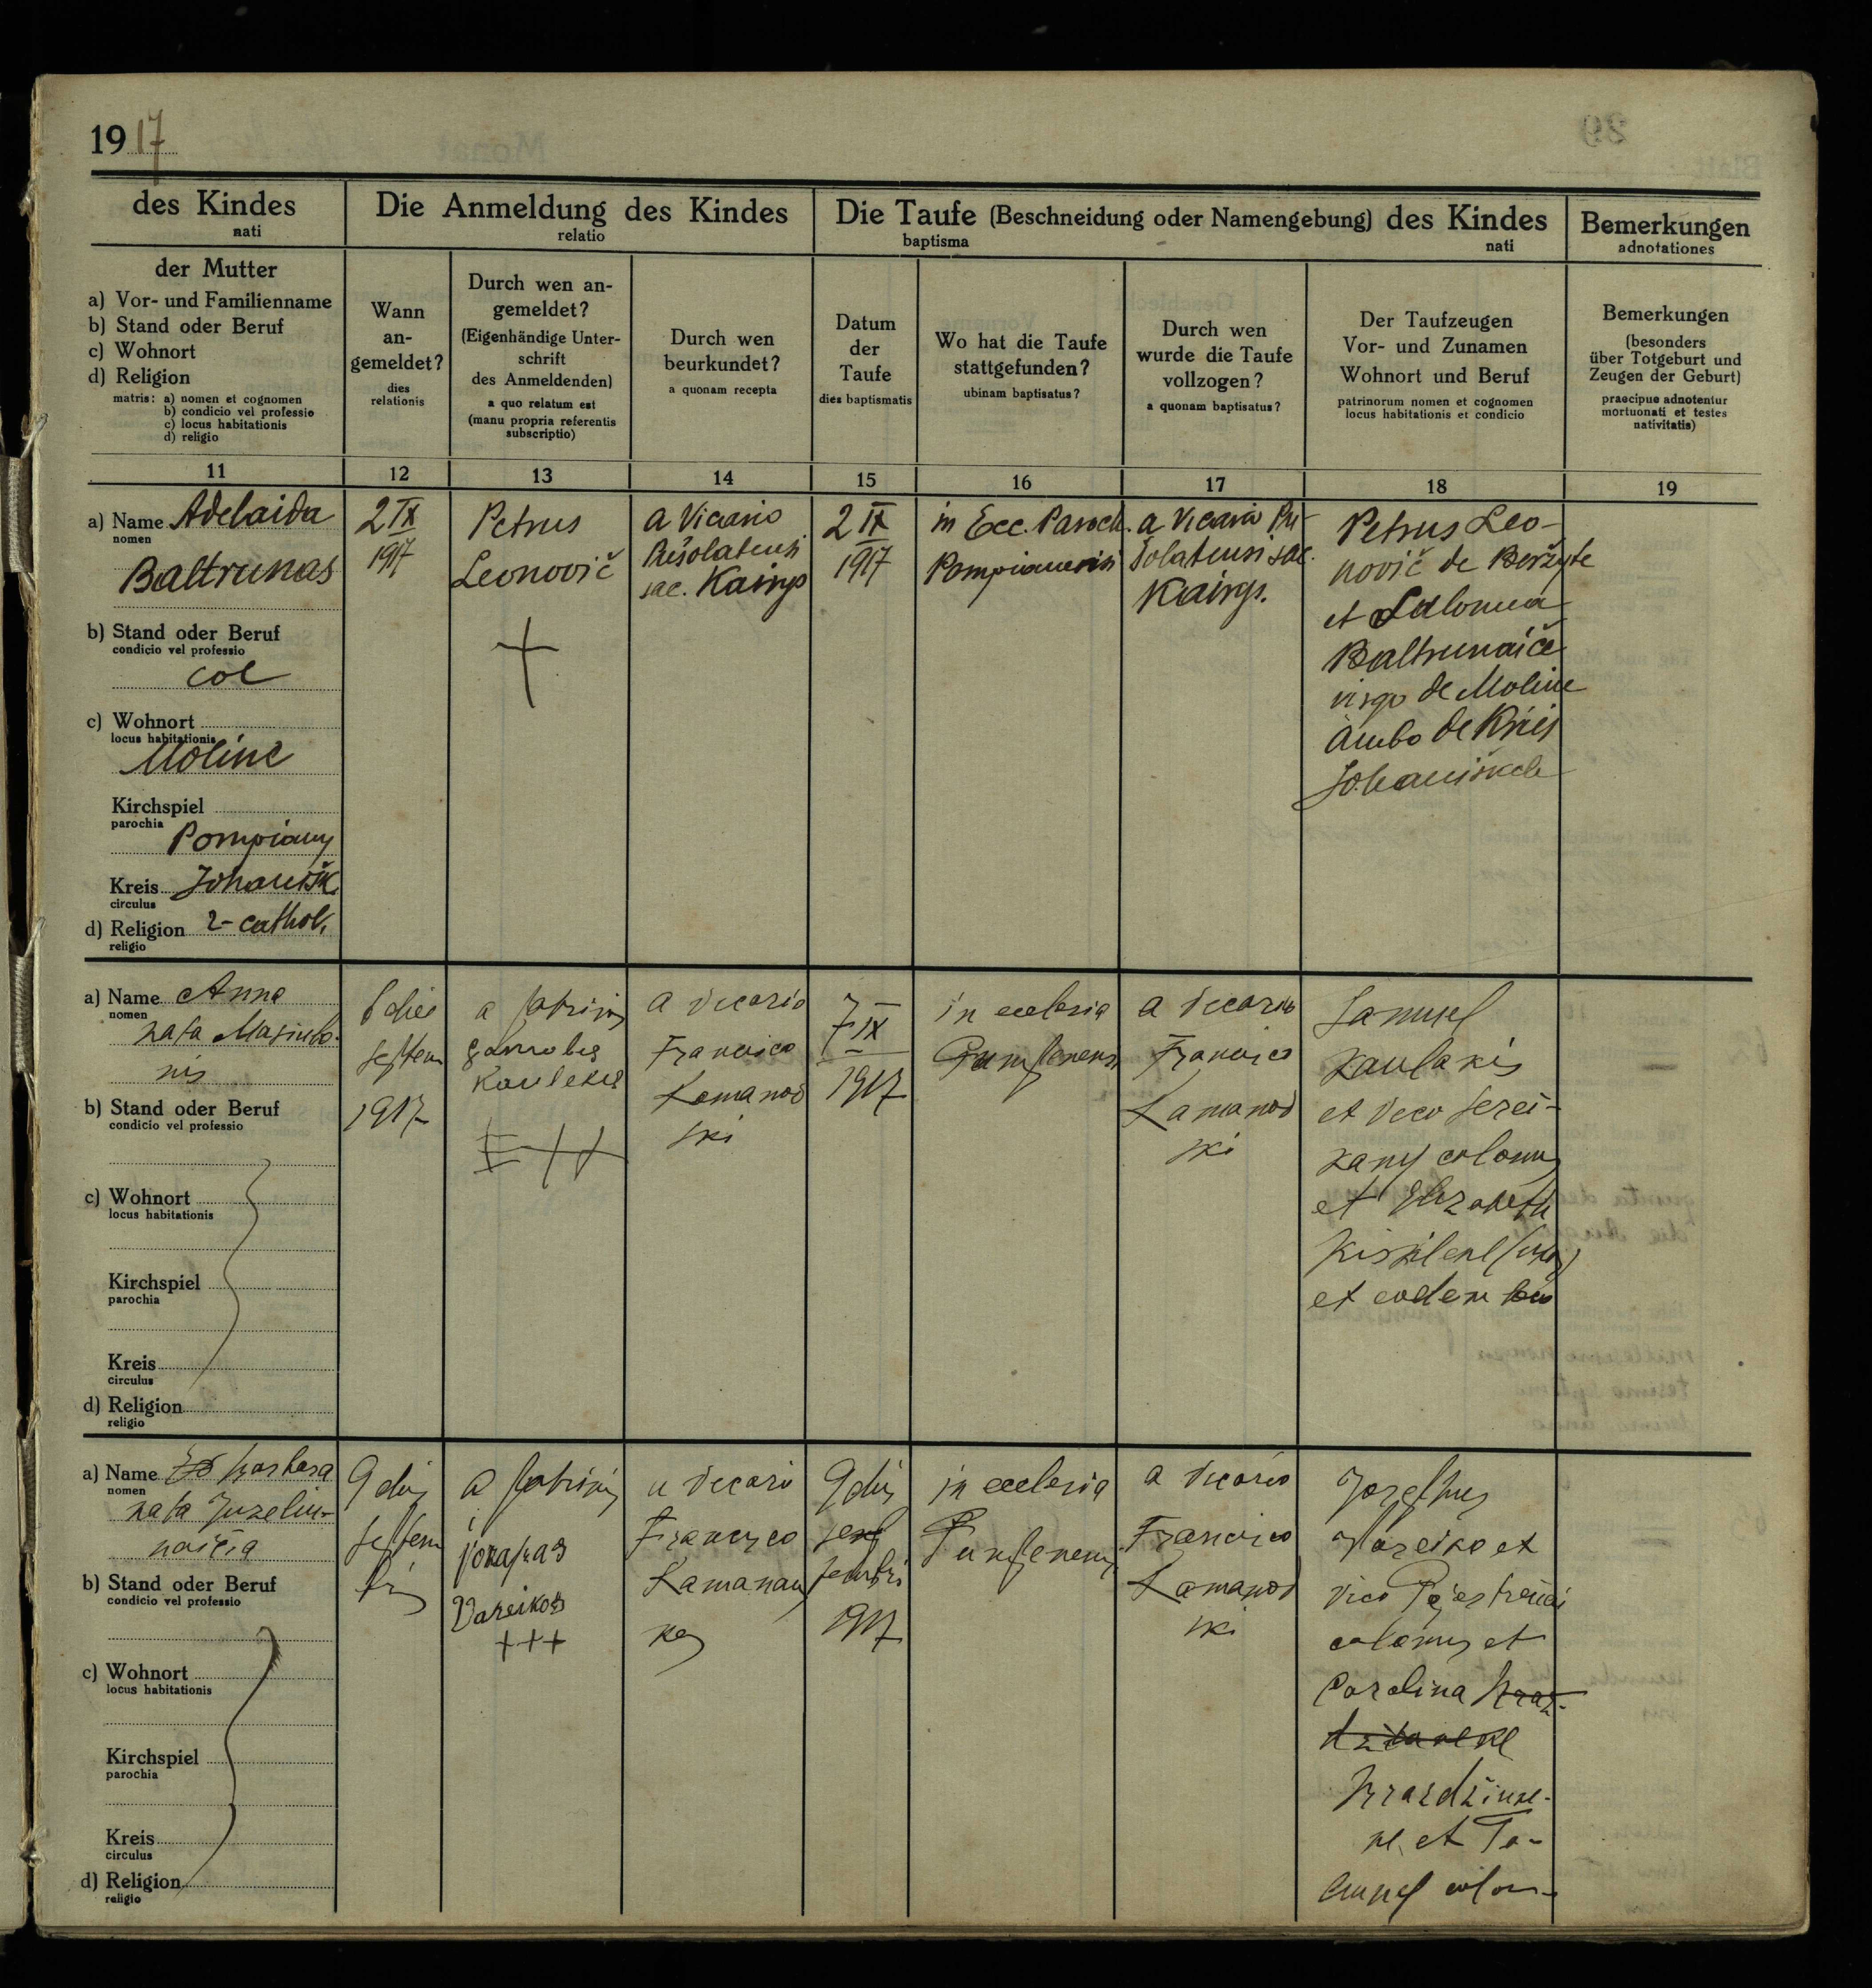 1917
des Kindes
nati
Die Anmeldung des Kindes
relatio
Die Taufe (Beschneidung oder Namengebung) des Kindes
baptisma nati
Bemerkungen
adnotationes
der Mutter
a) Vor- und Familienname
b) Stand oder Beruf
c) Wohnort
d) Religion
matris: a) nomen et cognomen
b) condicio vel professio
c) locus habitationis
d) religio
Wann
an-
gemeldet?
dies
relationis
Durch wen an-
gemeldet?
(Eigenhändige Unter-
schrift
des Anmeldenden)
a quo relatum est
(manu propria referentis
subscriptio)
Durch wen
beurkundet?
a quonam recepta
Datum
der
Taufe
dies baptismatis
Wo hat die Taufe
stattgefunden?
ubinam baptisatus?
Durch wen
wurde die Taufe
vollzogen?
a quonam baptisatus?
Der Taufzeugen
Vor- und Zunamen
Wohnort und Beruf
patrinorum nomen et cognomen
locus habitationis et condicio
Bemerkungen
(besonders
über Totgeburt und
Zeugen der Geburt)
praecipue adnotentur
mortuonati et testes
nativitatis)
11 12 13 14 15 16 17 18 19
a) Name Adelaida
nomen
Baltrunas
b) Stand oder Beruf
condicio vel professio
col
c) Wohnort
locus habitationis
Moline
Kirchspiel
parochia
Pompiany
Kreis Johanišk
circulus
d) Religion r-cathol.
religio
2 IX
1917
Petrus
Leonovič
a Vicario
sac. Kairys
2 IX
1917
in Ecc. Paroch.
a Vicario Pu-
šolatensi sac.
Kairys.
Petrus Leo-
novič de Beržyte
et Salomea
Baltrunaičė
virgo de Moline
ambo de Kreis
Johaniškele
a) Name Anna
nomen
nata
nis
b) Stand oder Beruf
condicio vel professio
c) Wohnort
locus habitationis
Kirchspiel
parochia
Kreis
circulus
d) Religion
religio
6 dies
septem
1917
a patrinis
a vicario
Francisco
Ramanos
ski
7 IX
1917
in ecclesia
a vicario
Francisco
Ramanos
ski
Samuel
Kaulakis
et vico Serei-
kany colonus
et Elizabeth
et eodem
a) Name Barbara
nomen
nata Juzeliu-
naičia
b) Stand oder Beruf
condicio vel professio
c) Wohnort
locus habitationis
Kirchspiel
parochia
Kreis
circulus
d) Religion
religio
9 dies
septem
bris
a patrinis
jozapas
Vareikos
+++
a vicario
Francisco
9 dies
1917
in ecclesia
a vicario
Francisco
Ramanos
ski
Josephus
Vareiko et
vico
colonus et
Carolina
et